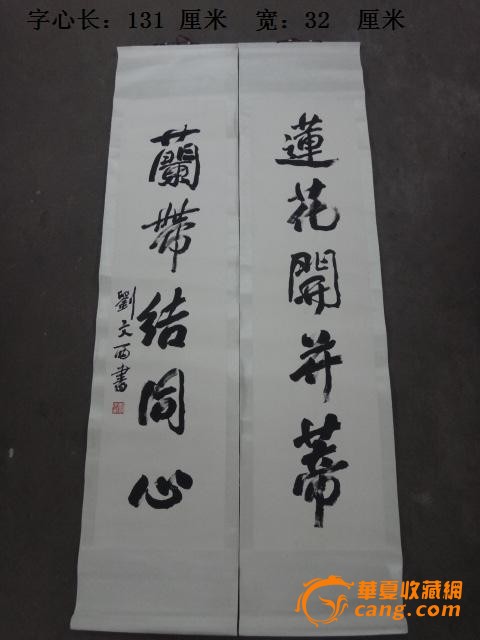 字心长：131 厘米 宽：32 厘米
蓮花開并蒂
蘭帶結同心
劉文西書
華夏收藏網
cang.com